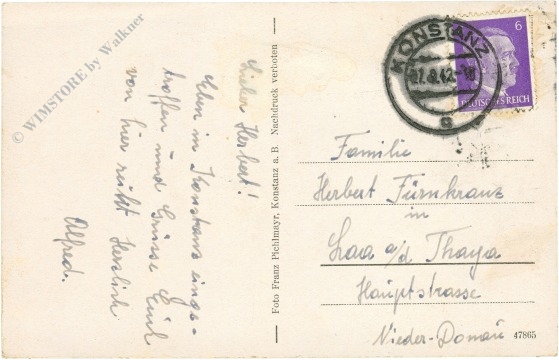 Lieber Herbert!
Eben in Konstanz einge-
troffen und Grüsse Euch
von hier recht Herzlich
Alfred.
Foto Franz Pichlmayr, Konstanz a. B. Nachdruck verboten
KONSTANZ
.8.42
6
DEUTSCHES REICH
Familie
Herbert Fürnkranz
in
Laa a/d Thaya
Hauptstrasse
Nieder-Donau
47865
© WIMSTORE by Walkner